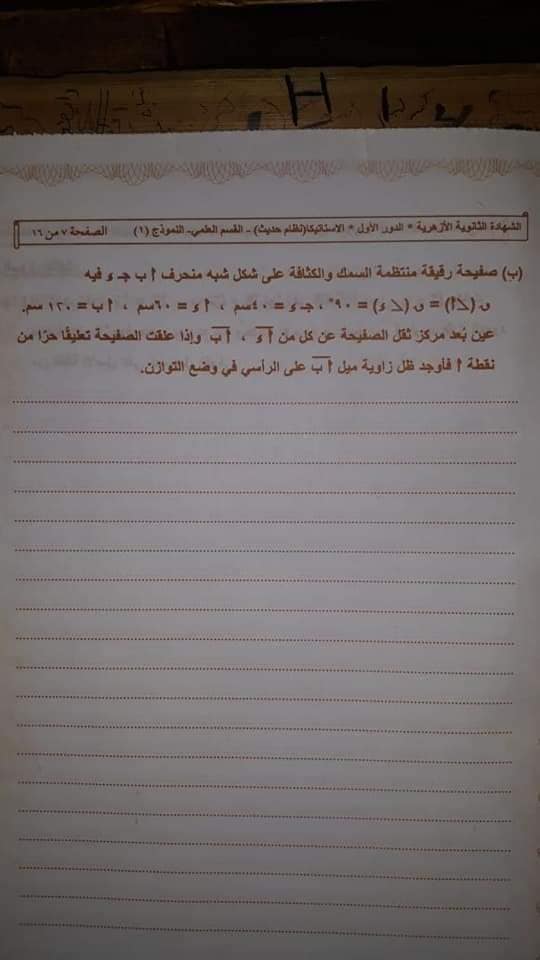 الشهادة الثانوية الأزهرية * الدور الأول * الاستاتيكا(نظام حديث) - القسم العلمي- النموذج (١) الصفحة ٧ من ١٦
(ب) صفيحة رقيقة منتظمة السمك والكثافة على شكل شبه منحرف أ ب جـ ء فيه
ں (أ⦣) = ں (⦣ ء) = ٩٠°، جـ ء = ٤٠سم ، أ ء = ٦٠سم ، أ ب = ١٢٠ سم.
عين بُعد مركز ثقل الصفيحة عن كل من أ ء ، أ ب وإذا علقت الصفيحة تعليقًا حرًا من
نقطة أ فأوجد ظل زاوية ميل أ ب على الرأسي في وضع التوازن.
H